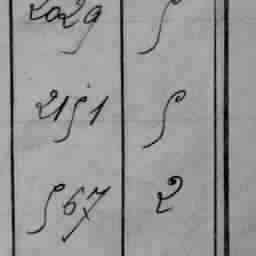 2029 5
2151 5
567 2